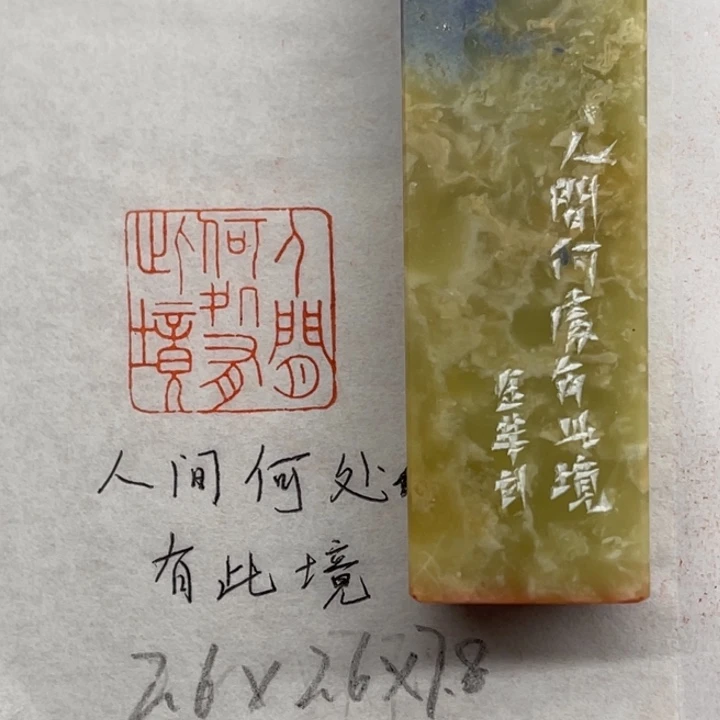 人閒
何処有
此境
人间何处
有此境
2.6×2.6×7.8
人間何處有此境